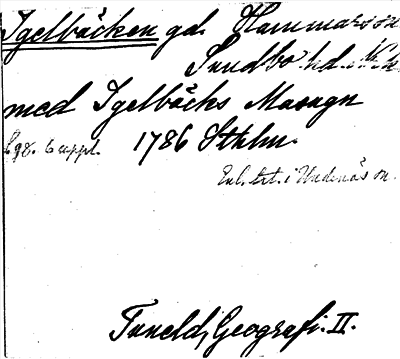 Igelbäcken gd. Hammarsön
Sundbo hd.
med Igelbächs Masugn
1786 Sthlm.
Enl. trt. i Undenäs sn.
Tuneld, Geografi. II.